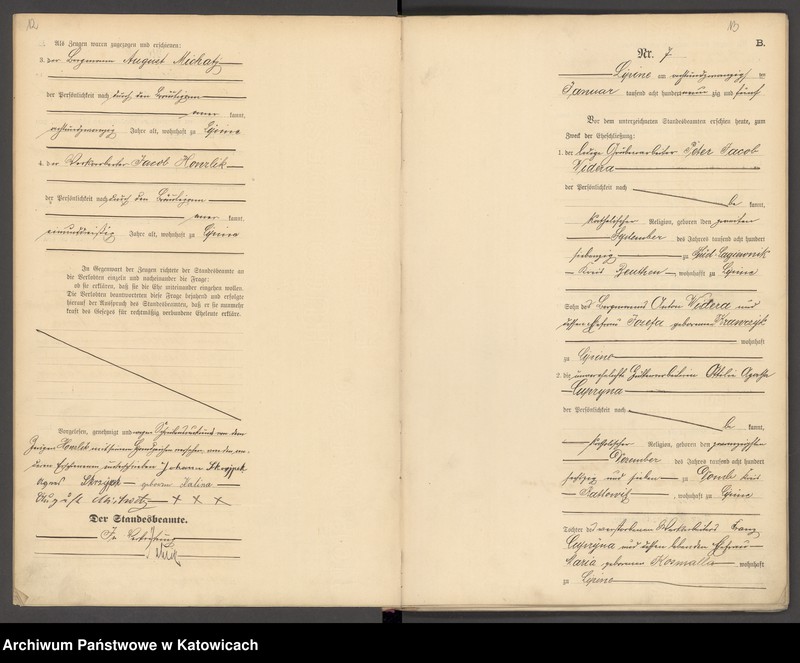 12
Als Zeugen waren zugezogen und erschienen:
3. der Bergmann August Michatz
der Persönlichkeit nach durch den Bräutigam
aner kannt,
achtundzwanzig Jahre alt, wohnhaft zu Lipine
4. der Jacob Honzlik
der Persönlichkeit nach durch den Bräutigam
aner kannt,
einunddreißig Jahre alt, wohnhaft zu Lipine
In Gegenwart der Zeugen richtete der Standesbeamte an
die Verlobten einzeln und nacheinander die Frage:
ob sie erklären, daß sie die Ehe miteinander eingehen wollen.
Die Verlobten beantworteten diese Frage bejahend und erfolgte
hierauf der Ausspruch des Standesbeamten, daß er sie nunmehr
kraft des Gesetzes für rechtmäßig verbundene Eheleute erkläre.
Vorgelesen, genehmigt und wegen von dem
Zeugen Honzlik mit seinem Handzeichen versehen, von den an-
deren Erschienenen unterschrieben Johann Skrzypek
Agnes Skrzypek geborene
August Michatz + + +
Der Standesbeamte.
In Vertretung
13
B.
Nr. 7
Lipine am achtundzwanzigsten
Januar tausend acht hundert neun zig und fünf
Vor dem unterzeichneten Standesbeamten erschien heute, zum
Zweck der Eheschließung:
1. der ledige Grubenarbeiter Peter Jacob
Widera
der Persönlichkeit nach
be kannt,
katholischer Religion, geboren den zweiten
September des Jahres tausend acht hundert
siebenzig zu Süd-Lagiewnik
Kreis Beuthen, wohnhaft zu Lipine
Sohn des Bergmanns Anton Widera und
dessen Ehefrau Josefa geborenen Krawczyk
wohnhaft
zu Lipine
2. die unverehelichte Hüttenarbeiterin Ottilie Agatha
Cupryna
der Persönlichkeit nach
be kannt,
katholischer Religion, geboren den zwanzigsten
November des Jahres tausend acht hundert
sechzig und sieben zu Domb Kreis
Kattowitz, wohnhaft zu Lipine
Tochter des verstorbenen Franz
Cupryna und dessen lebenden Ehefrau
Maria geborenen Kosmalla wohnhaft
zu Lipine
Archiwum Państwowe w Katowicach